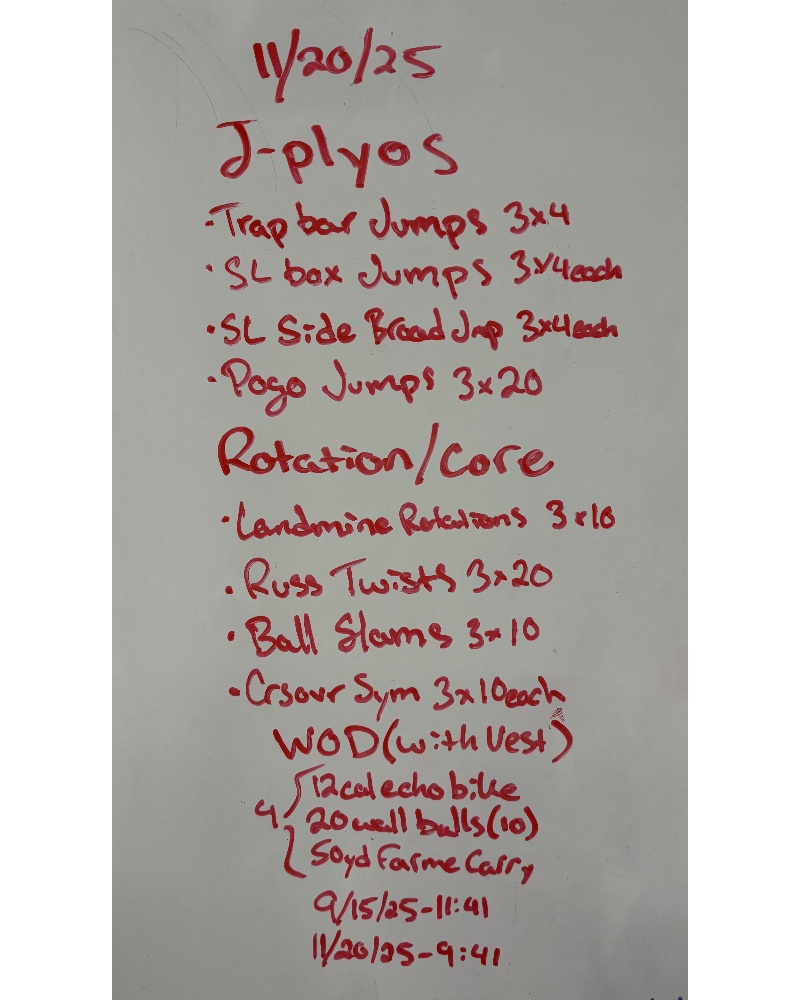 11/20/25
J-plyos
·Trap bar Jumps 3x4
·SL box Jumps 3x4each
·SL Side Broad Jmp 3x4each
·Pogo Jumps 3x20
Rotation/Core
·Landmine Rotations 3x10
·Russ Twists 3x20
·Ball Slams 3x10
·Crsovr Sym 3x10each
WOD(with Vest)
12cal echo bike
4 20 wall balls(10)
50yd Farme Carry
9/15/25-11:41
11/20/25-9:41